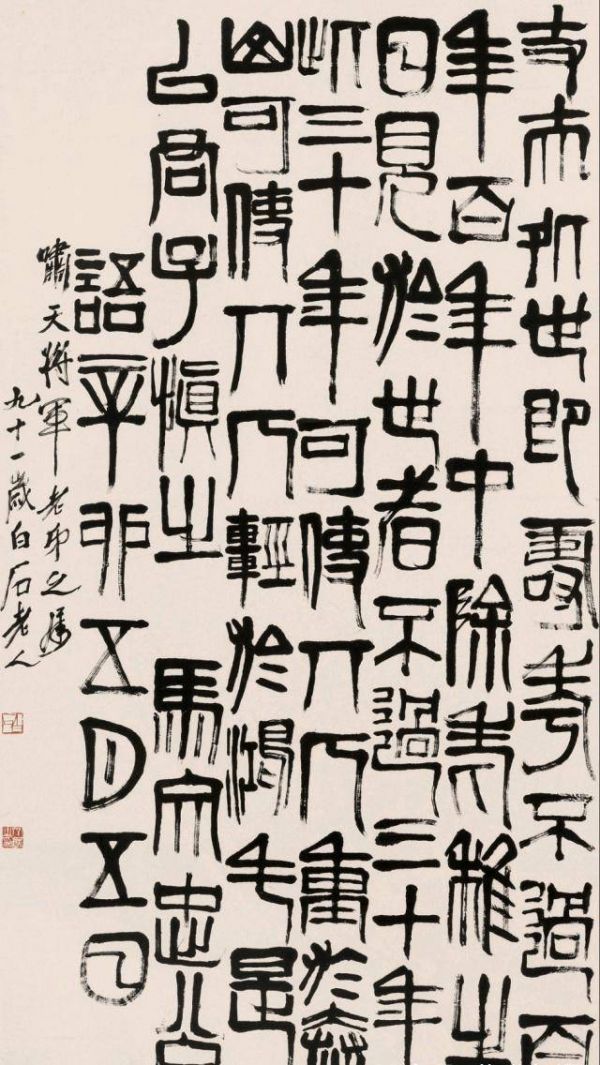 丈夫処世即壽考不過百
年百年中除老稚之
日見於世者不過三十年
此三十年可使人人重於泰
山可使人人輕於鴻毛是
以君子慎之 馬文忠公
語辛卯五月五日
嘯天將軍老弟之屬
九十一歲白石老人